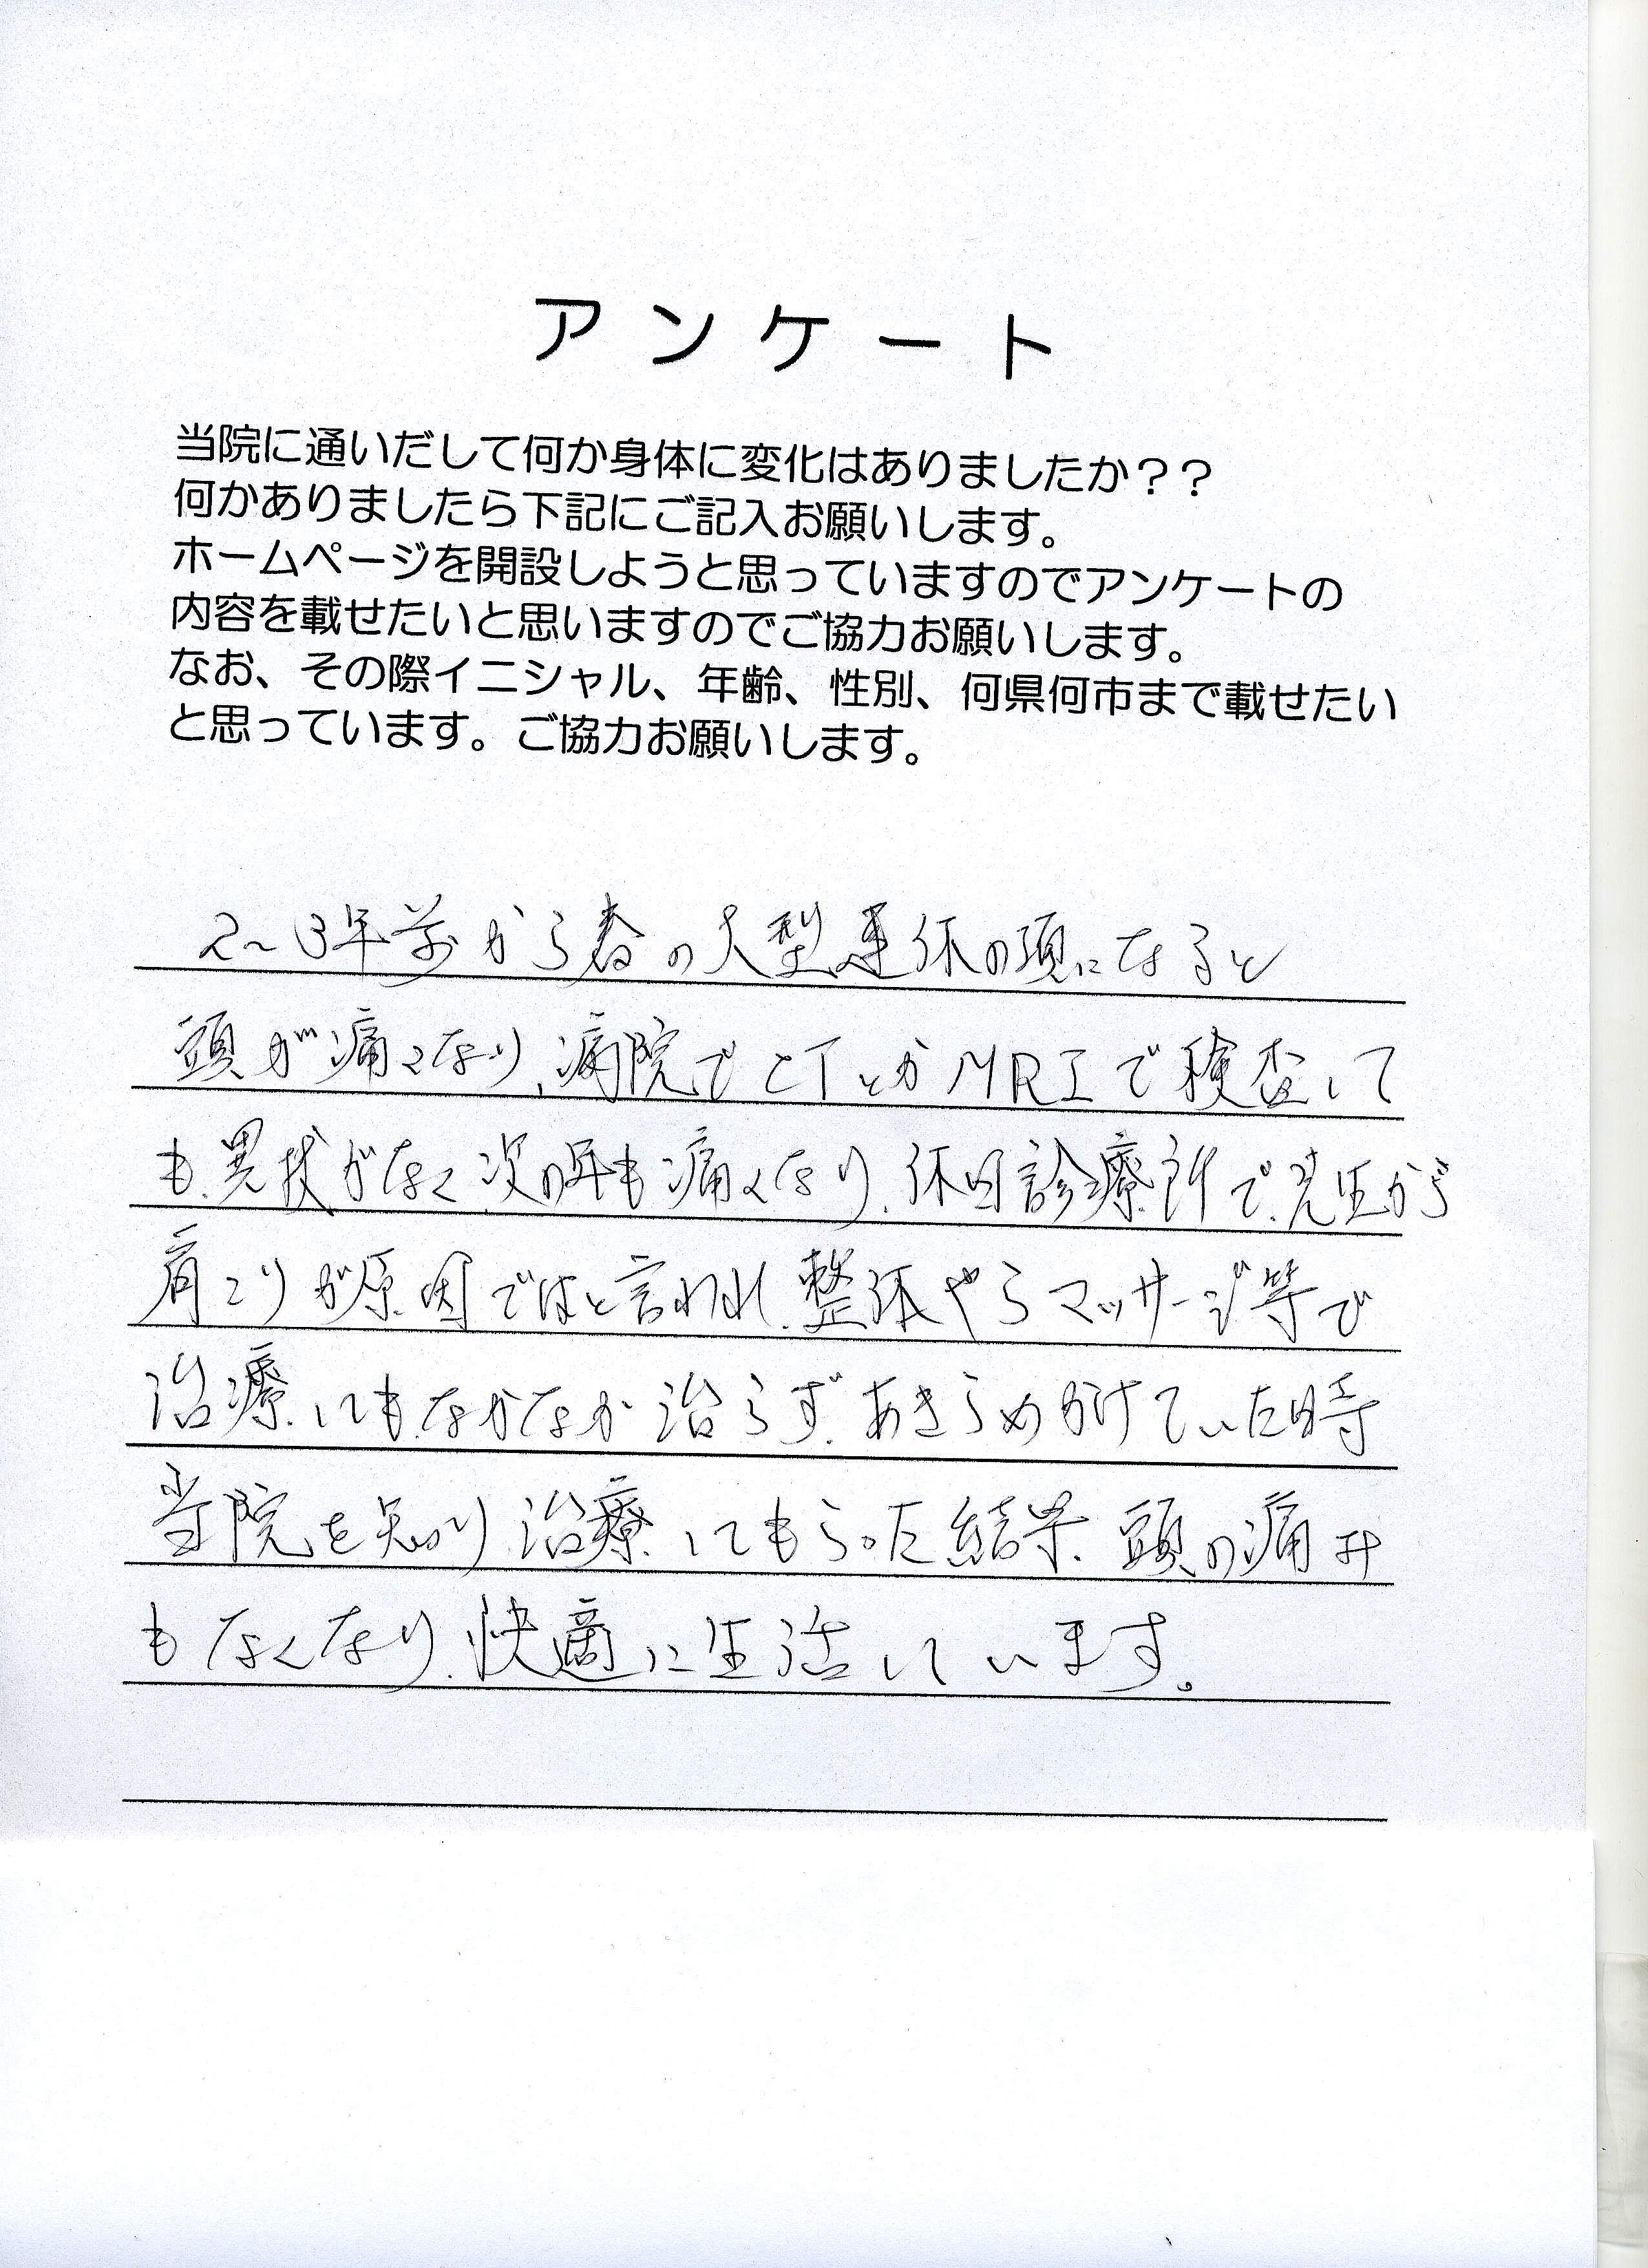 アンケート
当院に通いだして何か身体に変化はありましたか？？
何かありましたら下記にご記入お願いします。
ホームページを開設しようと思っていますのでアンケートの
内容を載せたいと思いますのでご協力お願いします。
なお、その際イニシャル、年齢、性別、何県何市まで載せたい
と思っています。ご協力お願いします。
2～3年前から春の大型連休の頃になると
頭が痛くなり、病院でCTとかMRIで検査して
も、異状がなく、次の年も痛くなり、休日診療所で、先生から
肩こりが原因ではと言われ、整体やらマッサージ等で
治療しても、なかなか治らず、あきらめかけていた時
当院を知り、治療してもらった結果、頭の痛み
もなくなり、快適に生活しています。